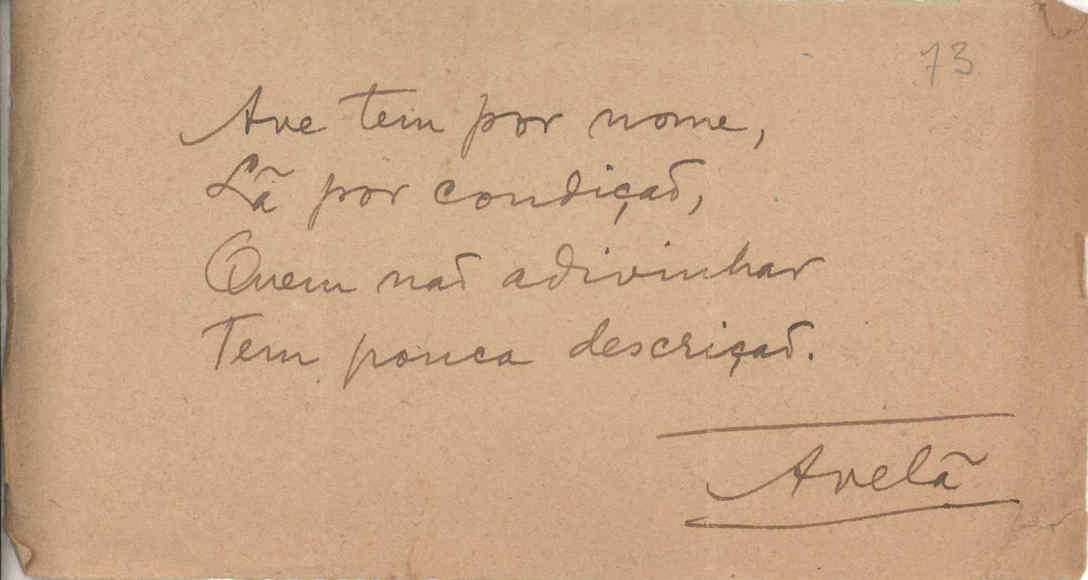 73
Ave tem por nome,
Lã por condição,
Quem não adivinhar
Tem pouca descrição.
Avelã